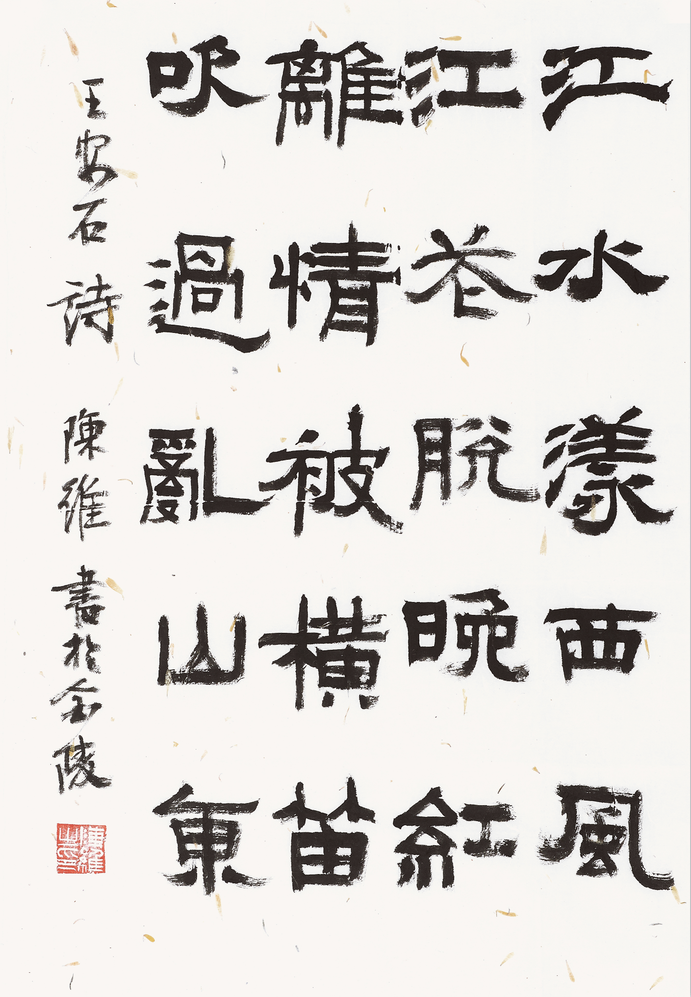 江水漾西風
江花脫晚紅
離情被橫笛
吹過亂山東
王安石詩 陳維書於金陵